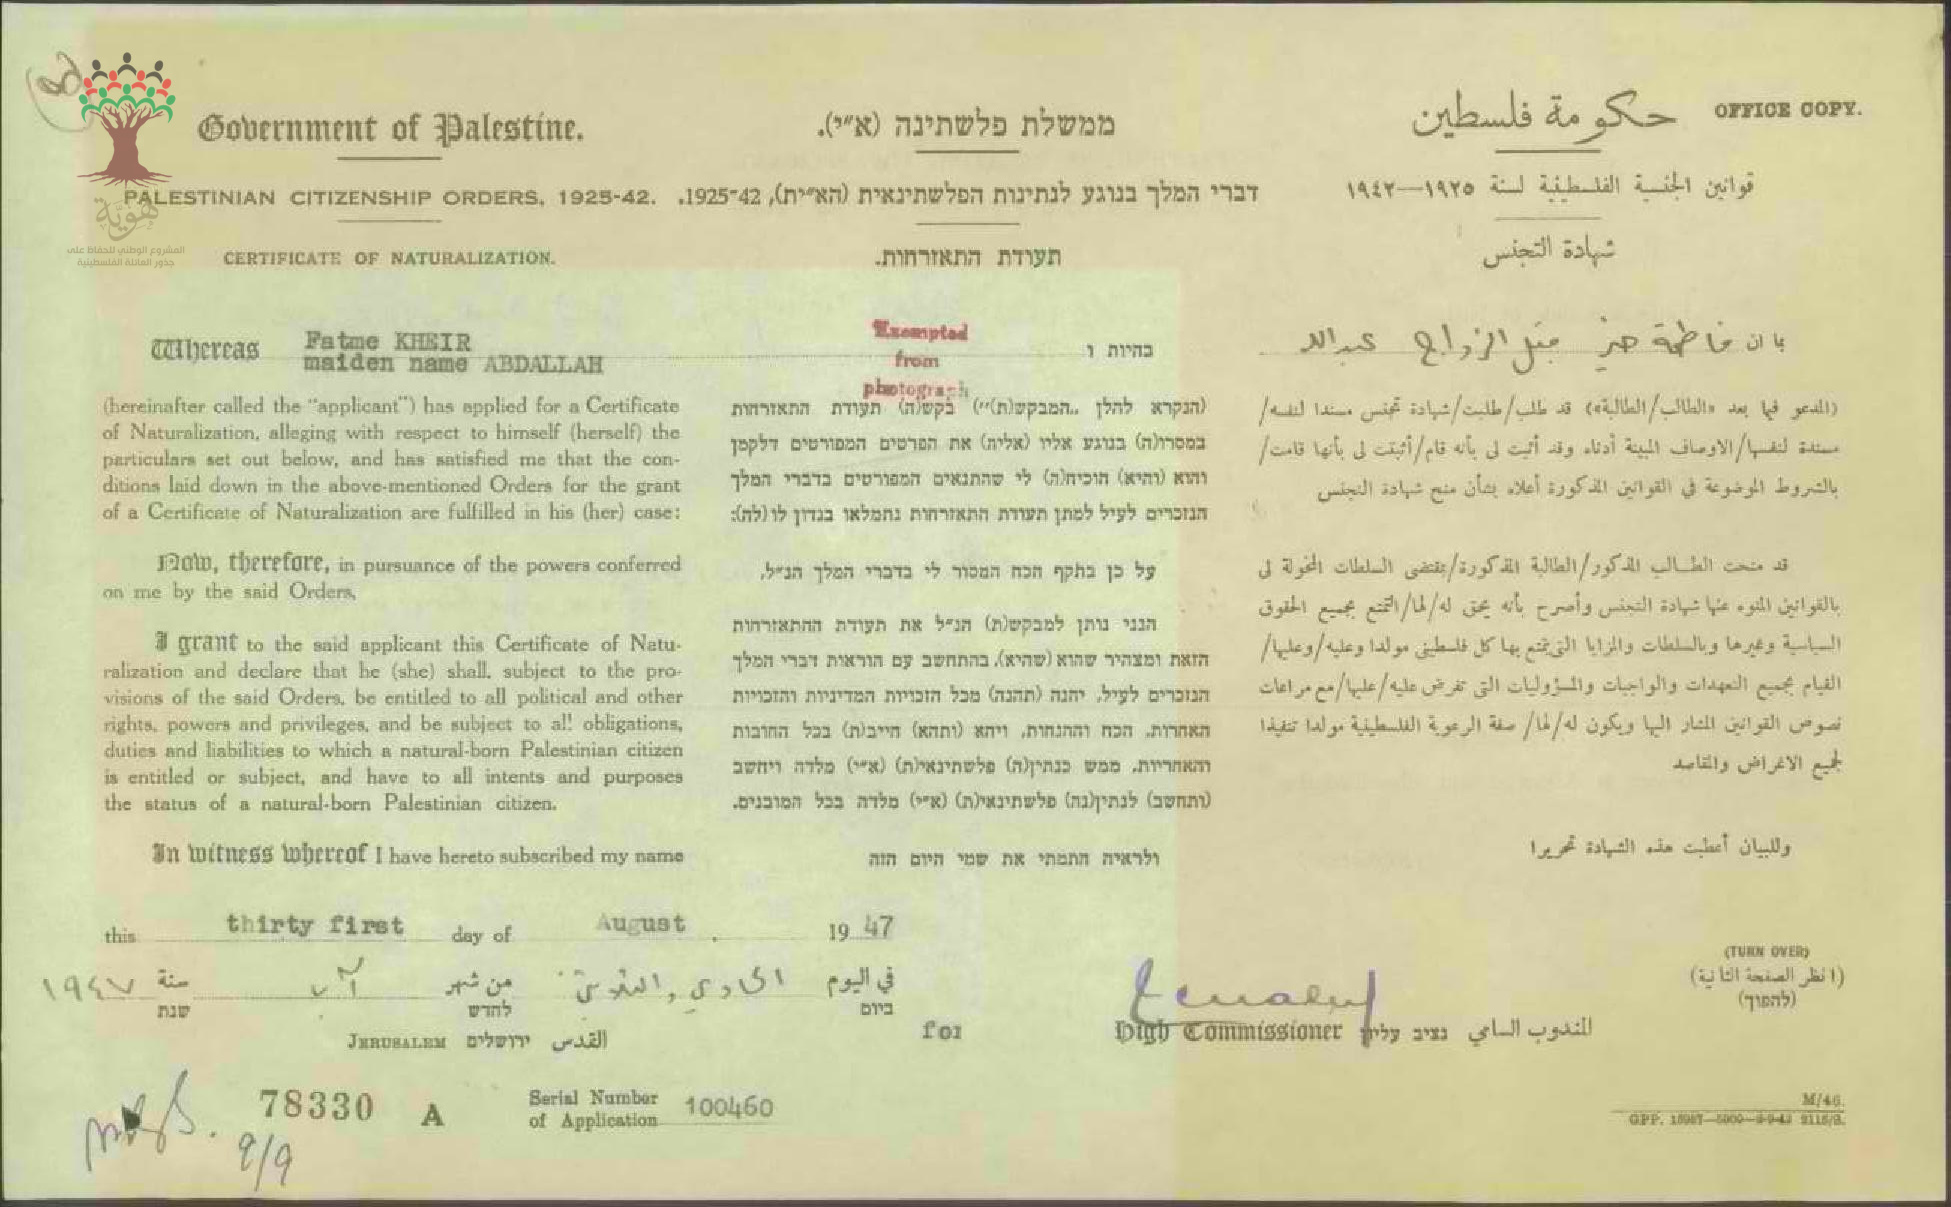 OFFICE COPY.
Government of Palestine.
ממשלת פלשתינה (א״י).
حكومة فلسطين
PALESTINIAN CITIZENSHIP ORDERS, 1925-42.
דברי המלך בנוגע לנתינות הפלשתינאית (הא״ית), 1925-42.
قوانين الجنسية الفلسطينية لسنة ١٩٢٥—١٩٤٢
هويّة
المشروع الوطني للحفاظ على
جذور العائلة الفلسطينية
CERTIFICATE OF NATURALIZATION.
תעודת התאזרחות.
شهادة التجنس
Whereas Fatme KHEIR
maiden name ABDALLAH
(hereinafter called the "applicant") has applied for a Certificate
of Naturalization, alleging with respect to himself (herself) the
particulars set out below, and has satisfied me that the con-
ditions laid down in the above-mentioned Orders for the grant
of a Certificate of Naturalization are fulfilled in his (her) case:
Now, therefore, in pursuance of the powers conferred
on me by the said Orders,
I grant to the said applicant this Certificate of Natu-
ralization and declare that he (she) shall, subject to the pro-
visions of the said Orders, be entitled to all political and other
rights, powers and privileges, and be subject to all obligations,
duties and liabilities to which a natural-born Palestinian citizen
is entitled or subject, and have to all intents and purposes
the status of a natural-born Palestinian citizen.
In witness whereof I have hereto subscribed my name
Exempted
from
photograph
בהיות ו
(הנקרא להלן „המבקש(ת)״) בקש(ה) תעודת התאזרחות
במסרו(ה) בנוגע אליו (אליה) את הפרטים המפורטים דלקמן
והוא (והיא) הוכיח(ה) לי שהתנאים המפורטים בדברי המלך
הנזכרים לעיל למתן תעודת התאזרחות נתמלאו בנדון לו (לה):
על כן בתקף הכח המסור לי בדברי המלך הנ״ל,
הנני נותן למבקש(ת) הנ״ל את תעודת ההתאזרחות
הזאת ומצהיר שהוא (שהיא), בהתחשב עם הוראות דברי המלך
הנזכרים לעיל, יהנה (תהנה) מכל הזכויות המדיניות והזכויות
האחרות, הכח וההנחות, ויהא (ותהא) חייב(ת) בכל החובות
והאחריות, ממש כנתין(ה) פלשתינאי(ת) (א״י) מלדה ויחשב
(ותחשב) לנתין(נה) פלשתינאי(ת) (א״י) מלדה בכל המובנים.
ולראיה חתמתי את שמי היום הזה
بما ان فاطمة خير قبل الزواج عبدالله
(المدعو فيما بعد «الطالب/الطالبة») قد طلب/طلبت/شهادة تجنس مسندا لنفسه/
مسندة لنفسها/الاوصاف المبينة أدناه وقد أثبت لي بأنه قام/أثبتت لي بأنها قامت/
بالشروط الموضوعة في القوانين المذكورة أعلاه بشأن منح شهادة التجنس
قد منحت الطالب المذكور/الطالبة المذكورة/بمقتضى السلطات المخولة لي
بالقوانين المنوه عنها شهادة التجنس وأصرح بأنه يحق له/لها/التمتع بجميع الحقوق
السياسية وغيرها وبالسلطات والمزايا التي يتمتع بها كل فلسطيني مولدا وعليه/وعليها/
القيام بجميع التعهدات والواجبات والمسؤوليات التي تفرض عليه/عليها/مع مراعات
نصوص القوانين المشار اليها ويكون له/لها/ صفة الرعوية الفلسطينية مولدا تنفيذا
لجميع الاغراض والمقاصد
وللبيان أعطيت هذه الشهادة تحريرا
this thirty first day of August 1947
في اليوم الحادي والثلاثين من شهر آب سنة ١٩٤٧
ביום לחדש שנת
JERUSALEM ירושלים القدس
for High Commissioner נציב עליון المندوب السامي
(TURN OVER)
(انظر الصفحة الثانية)
(להפוך)
78330 A
Serial Number
of Application 100460
9/9
M/46.